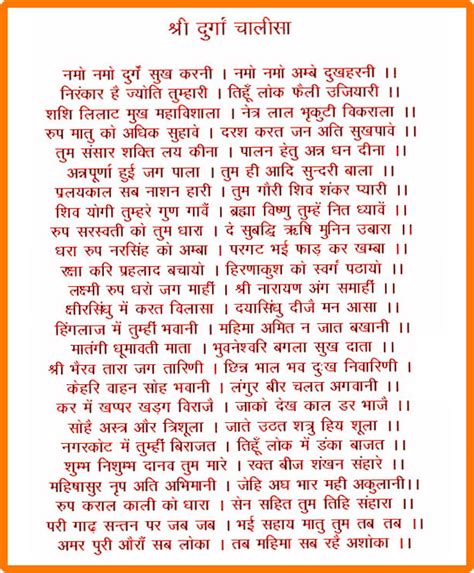 श्री दुर्गा चालीसा
नमो नमो दुर्गे सुख करनी । नमो नमो अम्बे दुखहरनी ।।
निरंकार है ज्योति तुम्हारी । तिहूँ लोक फैली उजियारी ।।
शशि लिलाट मुख महाविशाला । नेत्र लाल भृकुटी विकराला ।।
रुप मातु को अधिक सुहावे । दरश करत जन अति सुखपावे ।।
तुम संसार शक्ति लय कीना । पालन हेतु अन्न धन दीना ।।
अन्नपूर्णा हुई जग पाला । तुम ही आदि सुन्दरी बाला ।।
प्रलयकाल सब नाशन हारी । तुम गौरी शिव शंकर प्यारी ।।
शिव योगी तुम्हरे गुण गावें । ब्रह्मा विष्णु तुम्हें नित ध्यावें ।।
रुप सरस्वती को तुम धारा । दे सुबद्धि ऋषि मुनिन उबारा ।।
धरा रुप नरसिंह को अम्बा । परगट भई फाड़ कर खम्बा ।।
रक्षा करि प्रहलाद बचायो । हिरणाकुश को स्वर्ग पठायो ।।
लक्ष्मी रुप धरो जग माहीं । श्री नारायण अंग समाहीं ।।
क्षीरसिंधु में करत विलासा । दयासिंधु दीजै मन आसा ।।
हिंगलाज में तुम्हीं भवानी । महिमा अमित न जात बखानी ।।
मातंगी धूमावती माता । भुवनेश्वरि बगला सुख दाता ।।
श्री भैरव तारा जग तारिणी । छिन्न भाल भव दुःख निवारिणी ।
केहरि वाहन सोह भवानी । लंगुर बीर चलत अगवानी ।।
कर में खप्पर खड़ग विराजै । जाको देख काल डर भाजै ।।
सोहै अस्त्र और त्रिशूला । जाते उठत शत्रु हिय शूला ।।
नगरकोट में तुम्हीं बिराजत । तिहूँ लोक में डंका बाजत ।।
शुम्भ निशुम्भ दानव तुम मारे । रक्त बीज शंखन संहारे ।।
महिषासुर नृप अति अभिमानी । जेहि अघ भार मही अकुलानी।।
रुप कराल काली को धारा । सेन सहित तुम तिहि संहारा ।।
परी गाढ़ सन्तन पर जब जब । भई सहाय मातु तुम तब तब ।।
अमर पुरी औरों सब लोका । तब महिमा सब रहै अशोका ।।